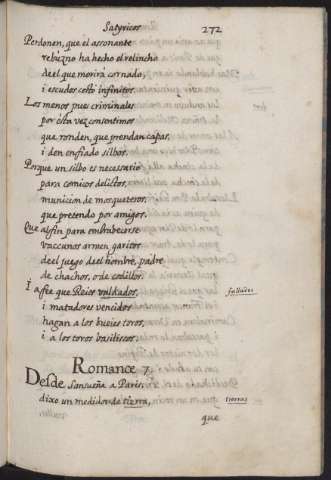 Satyricos 272
Perdonen, que el assonante
rebuzno ha hecho el relincho
de el que morirà cornado,
i escudos costò infinitos.
Los menos pues criminales
por esta vez consentimos
que ronden, que prendan capas,
i den enfiado silbos.
Porque un silbo es necessario
para comicos delictos,
municion de mosqueteros,
que pretendo por amigos.
Que alfin para embrubecerse
vaccunos armen garitos
de el juego de el hombre, padre
de chachos, o de codillos.
I a fee que Reies
i matadores vencidos
hagan a los bueies toros,
i a los toros basiliscos.
Romance 7.
Desde Sansueña a Paris,
dixo un medidor de tierra, tierras
que